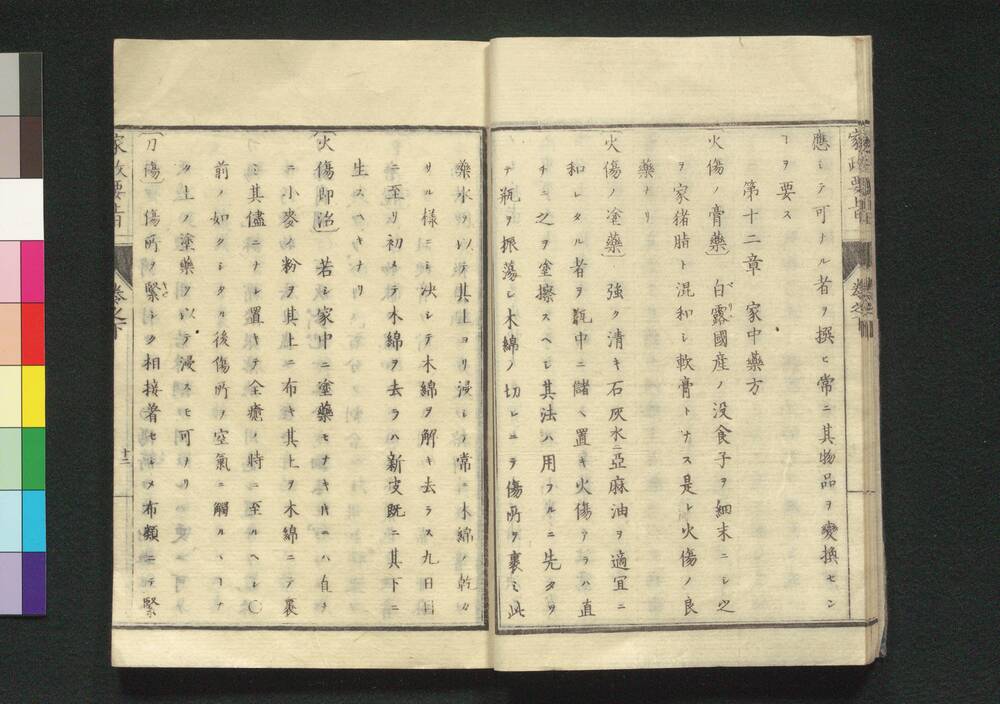 家政要旨
卷之
應シテ可ナル者ヲ撰ヒ常ニ其物品ヲ變換セン
ヿヲ要ス
第十二章 家中藥方
火傷ノ膏藥 白露國産ノ没食子ヲ細末ニシ之
ヲ家猪脂ト混和シ軟膏トナス是レ火傷ノ良
藥ナリ
火傷ノ塗藥 強ク清キ石灰水ニ亞麻油ヲ適宜ニ
和レタル者ヲ瓶中ニ儲ヘ置キ火傷アラハ直
チニ之ヲ塗擦スヘシ其法ハ用フルニ先タツ
テ瓶ヲ振蕩シ木綿ノ切レニテ傷所ヲ裹ミ此
藥水ヲ以テ其上ヨリ浸シ常ニ木綿ノ乾カ
サル樣ニシ決シテ木綿ヲ解キ去ラス九日目
ニ至リ初メテ木綿ヲ去ラハ新皮既ニ其下ニ
生スヘキナリ
火傷即治 若シ家中ニ塗藥モナキ片ハ直チ
ニ小麥ノ粉ヲ其上ニ布キ其上ヲ木綿ニテ裹
ミ其儘ニナシ置キテ全癒ノ時ニ至ルヘシ〇
前ノ如クシタル後傷所ノ空氣ニ觸ルヽヿナ
ク上ノ塗藥ヲ以テ浸スモ可ナリ
刀傷 傷所ヲ緊シク相接着セシメ布類ニテ緊
家政要旨
卷之下
十二